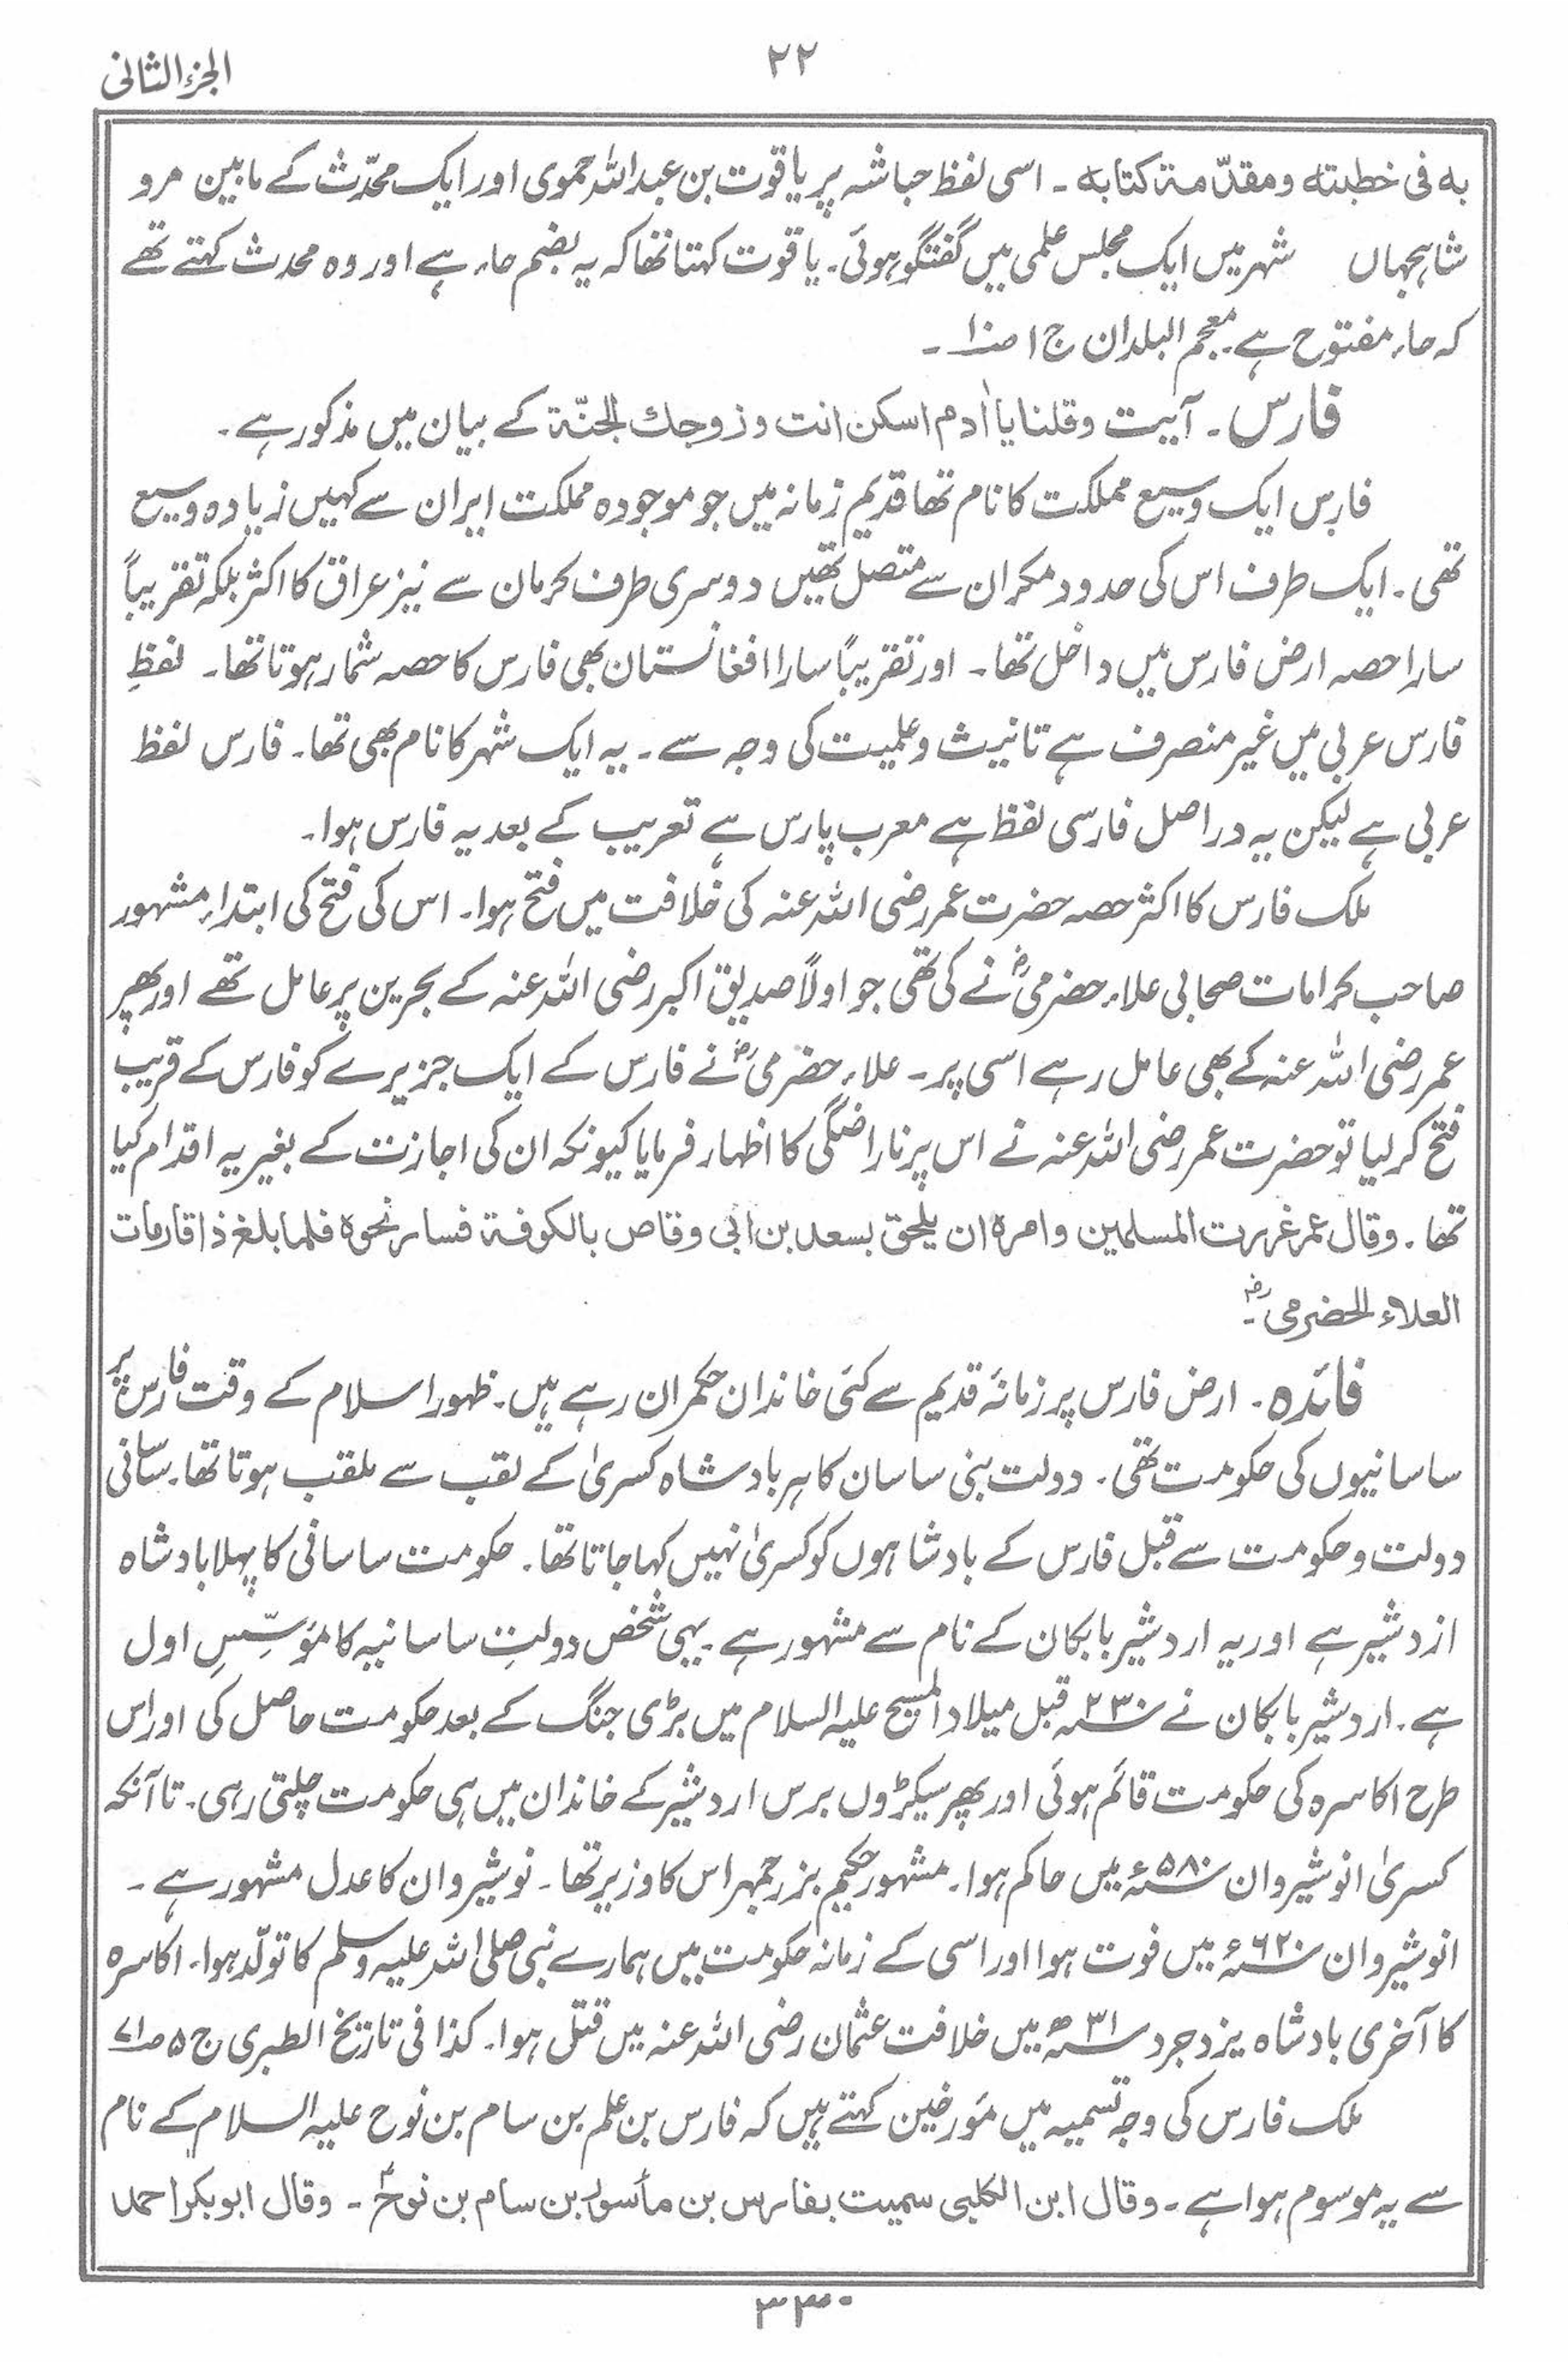 ۲۲
الجزء الثانی
به فی خطبته ومقدّمة کتابه ۔ اسی لفظ حباشہ پر یاقوت بن عبداللہ حموی اور ایک محدّث کے مابین مرو
شاہجہاں شہر میں ایک مجلس علمی میں گفتگو ہوئی۔ یاقوت کہتا تھا کہ یہ بضم حاء ہے اور وہ محدث کہتے تھے
کہ حاء مفتوح ہے۔ معجم البلدان ج ۱ ص ۱۰ ۔
فارس ۔ آیت وقلنا یا اٰدم اسکن انت وزوجك الجنّة کے بیان میں مذکور ہے۔
فارِس ایک وسیع مملکت کا نام تھا قدیم زمانہ میں جو موجودہ مملکت ایران سے کہیں زیادہ وسیع
تھی۔ ایک طرف اس کی حدود مکران سے متصل تھیں دوسری طرف کرمان سے نیز عراق کا اکثر بلکہ تقریباً
سارا حصہ ارض فارس میں داخل تھا۔ اور تقریباً سارا افغانستان بھی فارس کا حصہ شمار ہوتا تھا۔ لفظِ
فارس عربی میں غیر منصرف ہے تانیث وعلمیت کی وجہ سے۔ یہ ایک شہر کا نام بھی تھا۔ فارس لفظ
عربی ہے لیکن یہ دراصل فارسی لفظ ہے معرب پارس ہے تعریب کے بعد یہ فارس ہوا۔
ملک فارس کا اکثر حصہ حضرت عمر رضی اللہ عنہ کی خلافت میں فتح ہوا۔ اس کی فتح کی ابتداء مشہور
صاحب کرامات صحابی علاء حضرمیؓ نے کی تھی جو اولاً صدیق اکبر رضی اللہ عنہ کے بحرین پر عامل تھے اور پھر
عمر رضی اللہ عنہ کے بھی عامل رہے اسی پر۔ علاء حضرمیؓ نے فارس کے ایک جزیرے کو فارس کے قریب
فتح کر لیا تو حضرت عمر رضی اللہ عنہ نے اس پر ناراضگی کا اظہار فرمایا کیونکہ ان کی اجازت کے بغیر یہ اقدام کیا
تھا۔ وقال عمر غررت المسلمین وامره ان یلحق بسعد بن ابی وقاص بالکوفة فسار نحوه فلما بلغ ذاقار مات
العلاء الحضرمیؓ۔
فائدہ ۔ ارض فارس پر زمانۂ قدیم سے کئی خاندان حکمران رہے ہیں۔ ظہور اسلام کے وقت فارس پر
ساسانیوں کی حکومت تھی۔ دولت بنی ساسان کا ہر بادشاہ کسریٰ کے لقب سے ملقب ہوتا تھا۔ ساسانی
دولت وحکومت سے قبل فارس کے بادشاہوں کو کسریٰ نہیں کہا جاتا تھا۔ حکومت ساسانی کا پہلا بادشاہ
ازدشیر ہے اور یہ اردشیر بابکان کے نام سے مشہور ہے۔ یہی شخص دولتِ ساسانیہ کا مؤسِّسِ اول
ہے۔ اردشیر بابکان نے ۲۳۰ھ قبل میلاد المسیح علیہ السلام میں بڑی جنگ کے بعد حکومت حاصل کی اور اس
طرح اکاسرہ کی حکومت قائم ہوئی اور پھر سیکڑوں برس اردشیر کے خاندان میں ہی حکومت چلتی رہی۔ تا آنکہ
کسریٰ انوشیروان ۵۸۰ء میں حاکم ہوا۔ مشہور حکیم بزرجمہر اس کا وزیر تھا۔ نوشیروان کا عدل مشہور ہے۔
انوشیروان ۶۲۰ء میں فوت ہوا اور اسی کے زمانہ حکومت میں ہمارے نبی صلی اللہ علیہ وسلم کا تولّد ہوا۔ اکاسرہ
کا آخری بادشاہ یزدجرد ۳۱ھ میں خلافت عثمان رضی اللہ عنہ میں قتل ہوا۔ کذا فی تاریخ الطبری ج ۵ ص ۷۱
ملک فارس کی وجہ تسمیہ میں مؤرخین کہتے ہیں کہ فارس بن علم بن سام بن نوح علیہ السلام کے نام
سے یہ موسوم ہوا ہے۔ وقال ابن الکلبی سمیت بفارس بن مأسور بن سام بن نوحؑ ۔ وقال ابوبکر احمد
۳۳۰